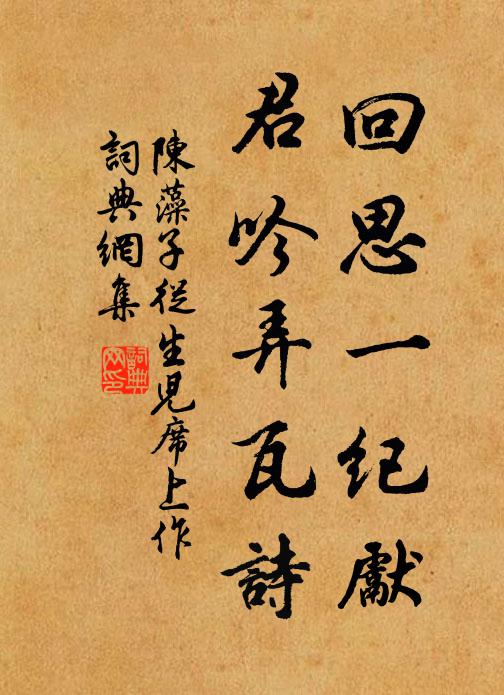 回思一纪獻
君吟弄瓦詩
陳藻子從生見席上作
詞典網集
詞典網印